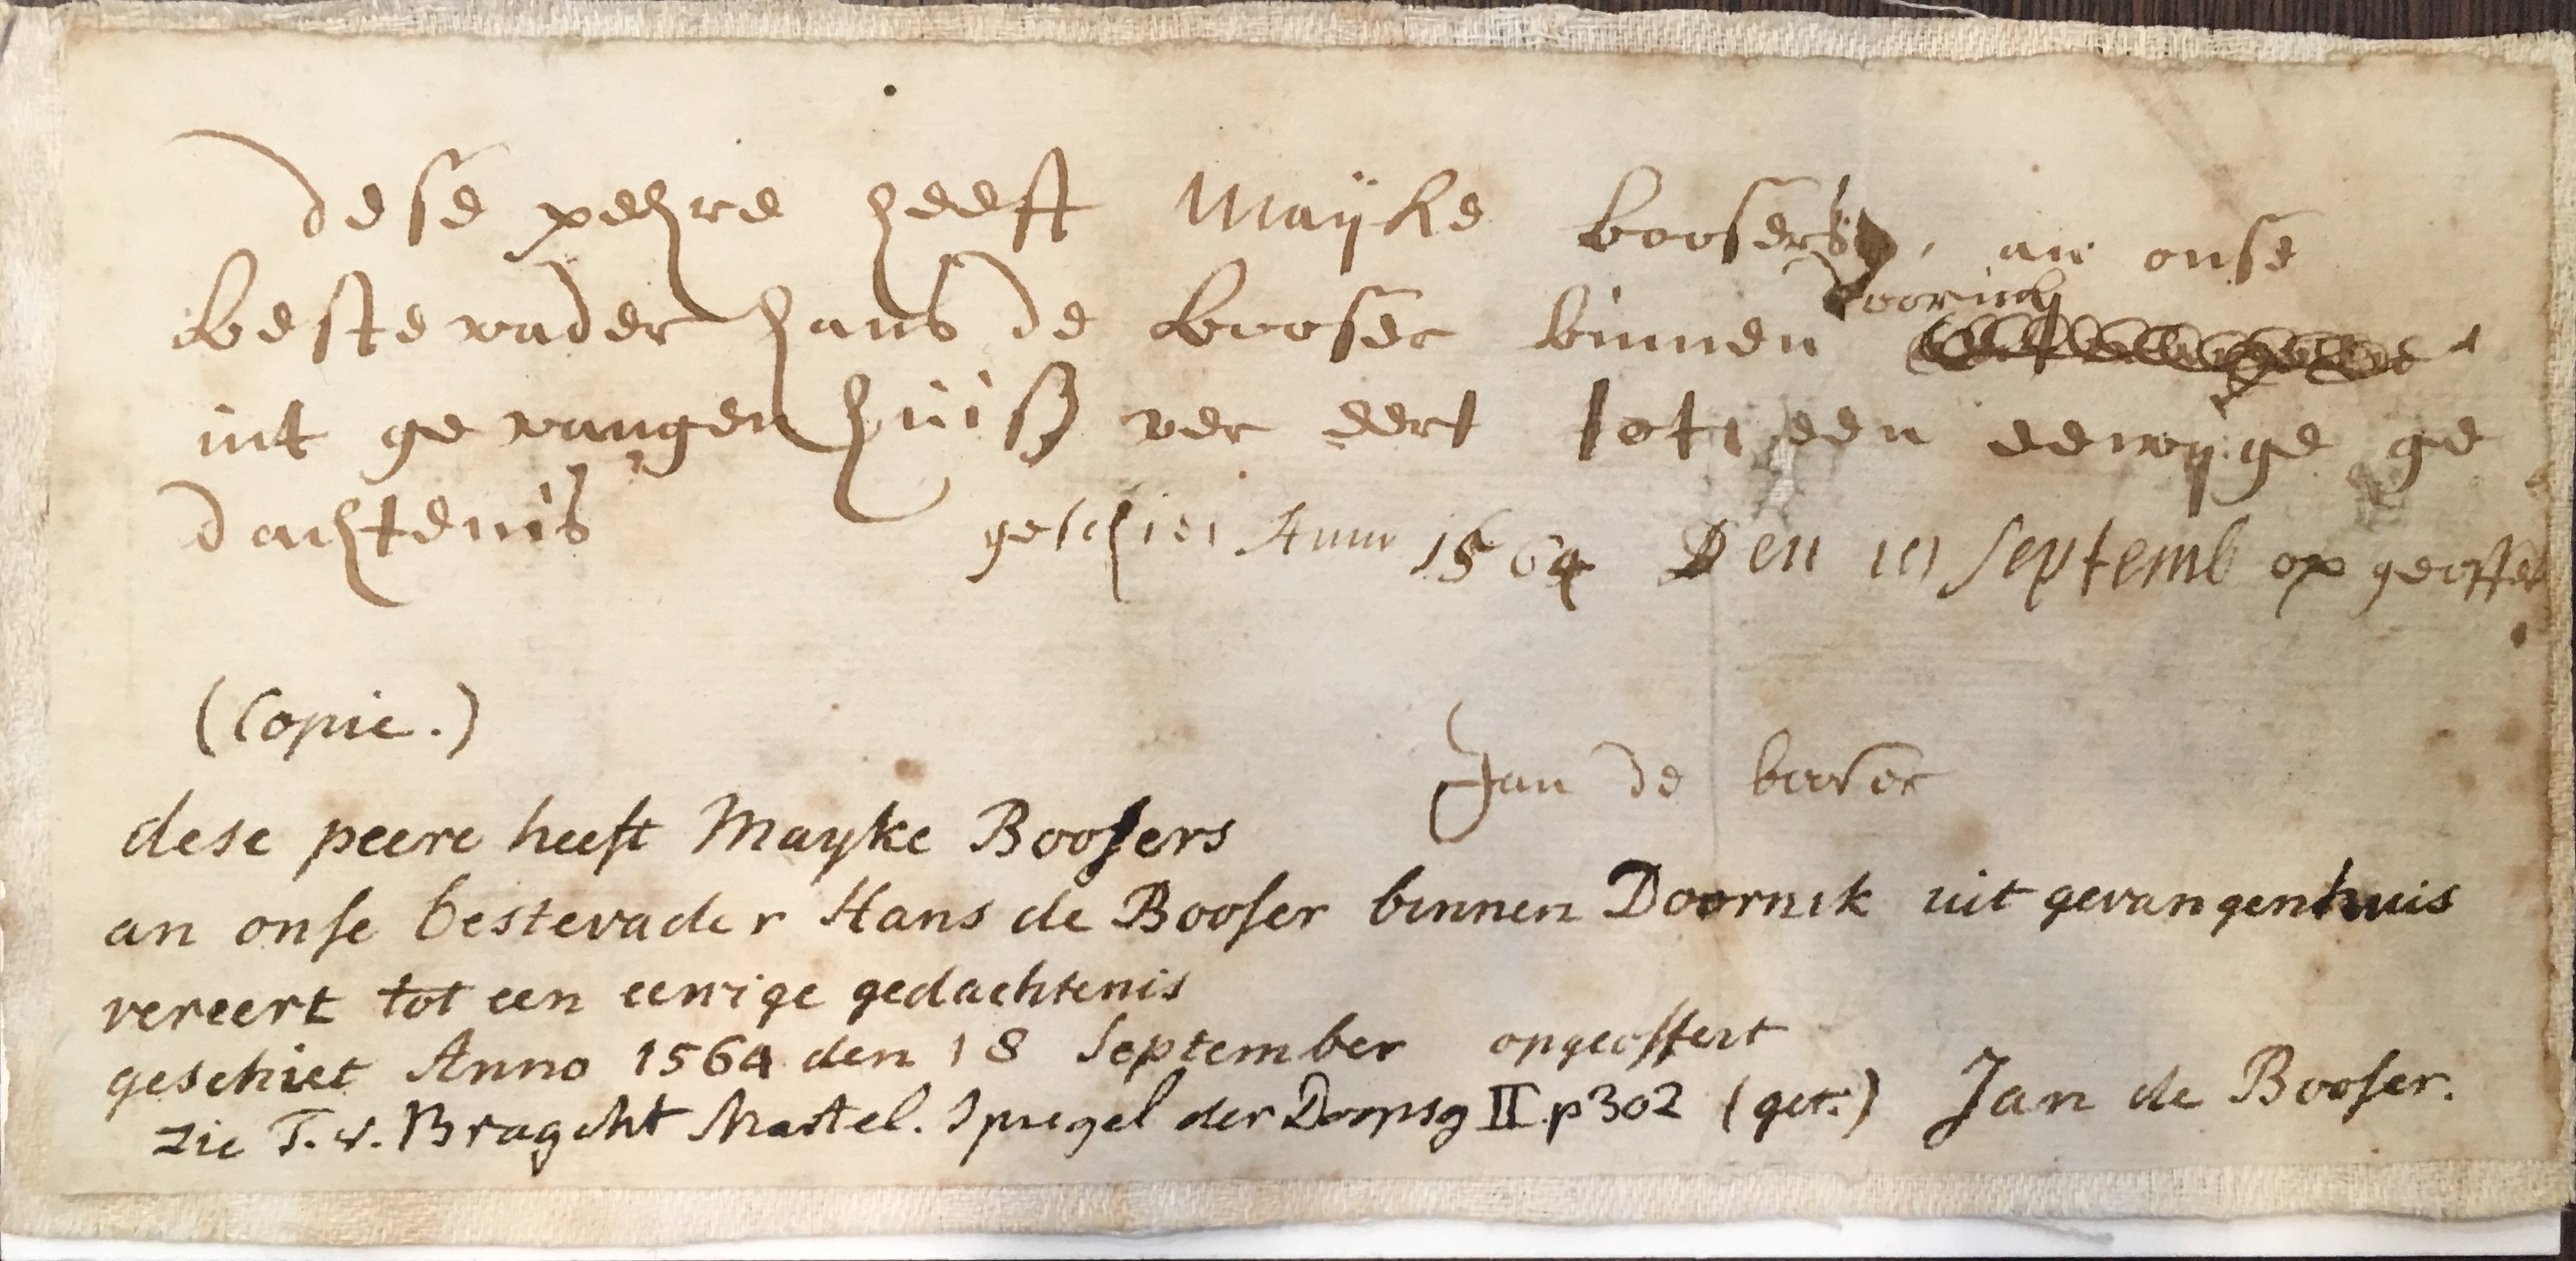 dese pehre heeft Maÿke boosers, an onse
beste vader hans de booser binnen Doornick
uit ge vangen huiß ver eert tot een eewyge ge
dachtenis geschiet Anno 1564 Den Septemb op geoffert
(Copie.)
Jan de booser
dese peere heeft Mayke Boosers
an onse bestevader Hans de Booser binnen Doornik uit gevangenhuis
vereert tot een eewige gedachtenis
geschiet Anno 1564 den 18 September opgeoffert
zie T. v. Bragcht Martel. Spiegel der Doopsg II. p 302 (get:) Jan de Booser.